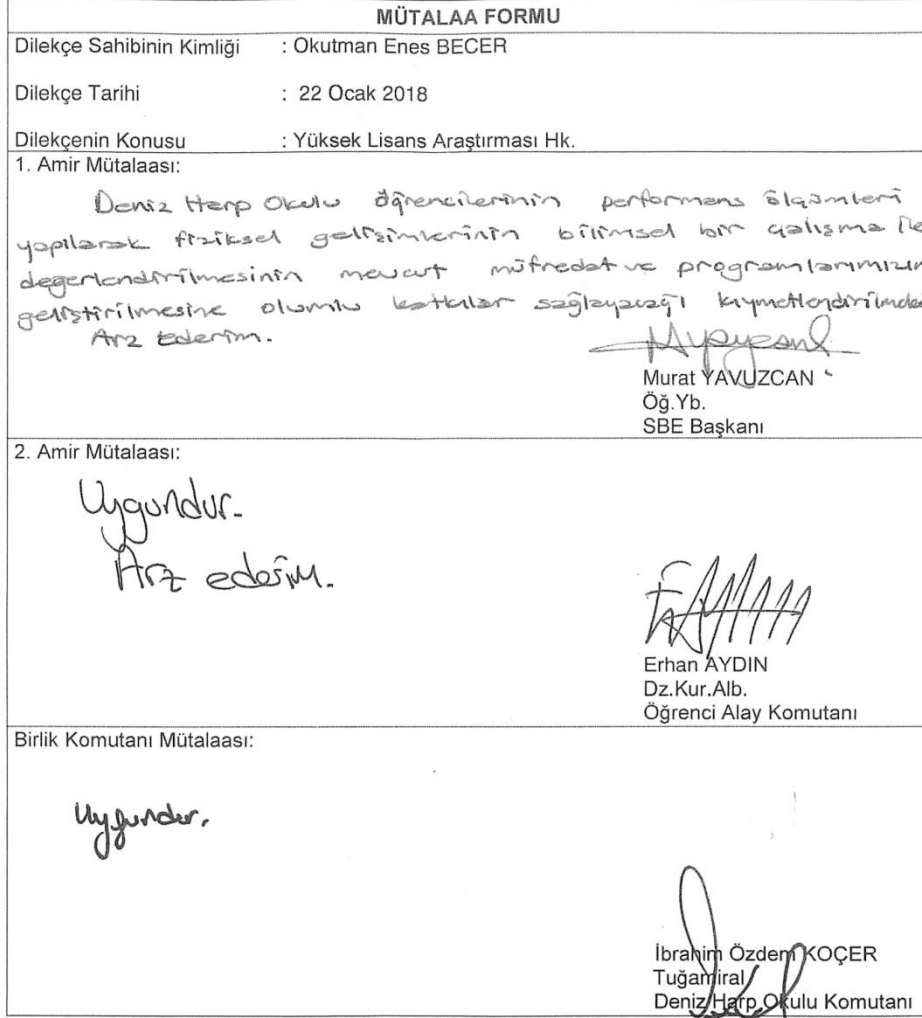 MÜTALAA FORMU
Dilekçe Sahibinin Kimliği : Okutman Enes BECER
Dilekçe Tarihi : 22 Ocak 2018
Dilekçenin Konusu : Yüksek Lisans Araştırması Hk.
1. Amir Mütalaası:
Deniz Harp Okulu öğrencilerinin performans ölçümleri
yapılarak fiziksel gelişimlerinin bilimsel bir çalışma ile
değerlendirilmesinin mevcut müfredat ve programlarımızın
geliştirilmesine olumlu katkılar sağlayacağı kıymetlendirilmekte
Arz Ederim.
Murat YAVUZCAN
Öğ.Yb.
SBE Başkanı
2. Amir Mütalaası:
Uygundur.
Arz ederim.
Erhan AYDIN
Dz.Kur.Alb.
Öğrenci Alay Komutanı
Birlik Komutanı Mütalaası:
Uygundur.
İbrahim Özdem KOÇER
Tuğamiral
Deniz Harp Okulu Komutanı